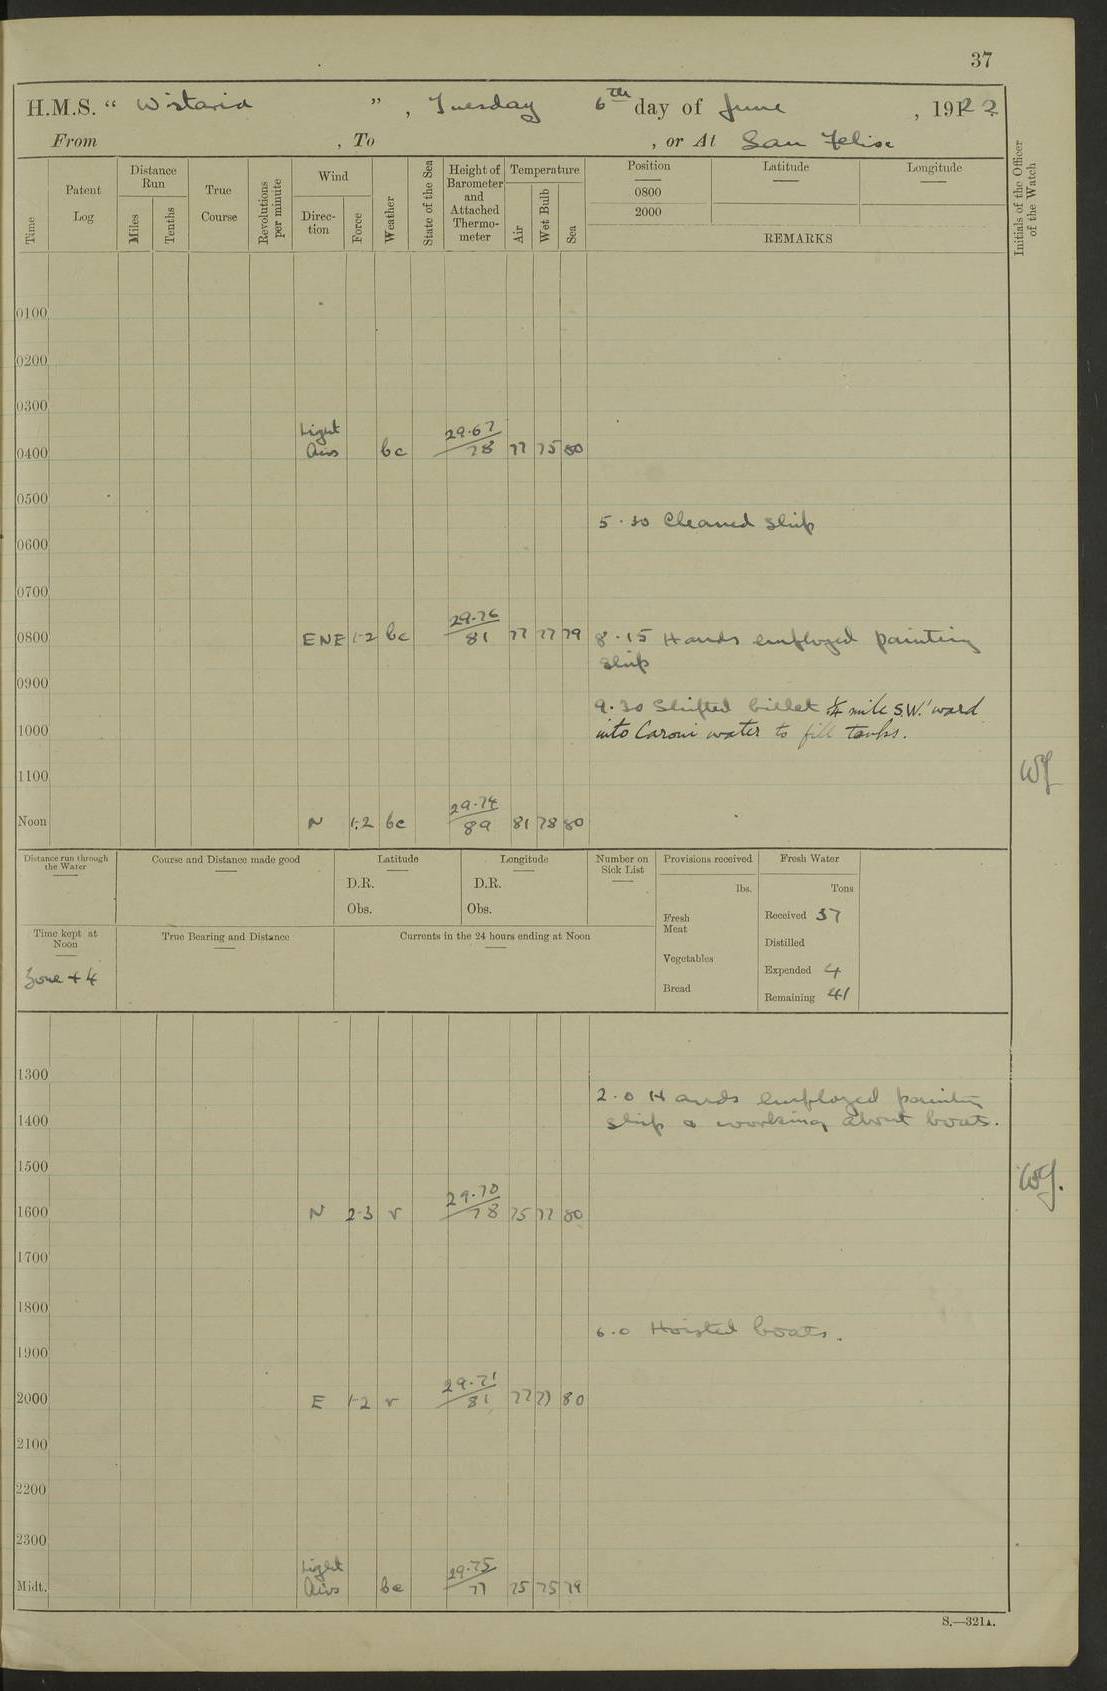 37
H.M.S. “ Wistaria ” , Tuesday 6th day of June , 1922
From , To , or At San Felix
Time
Patent Log
Distance Run
Miles
Tenths
True Course
Revolutions per minute
Wind
Direc-tion
Force
Weather
State of the Sea
Height of Barometer and Attached Thermo-meter
Temperature
Air
Wet Bulb
Sea
Position
0800
2000
Latitude
Longitude
REMARKS
Initials of the Officer of the Watch
0100
0200
0300
0400 Light Airs bc 29.67/78 77 75 80
0500
5.30 Cleaned ship
0600
0700
0800 ENE 1-2 bc 29.76/81 77 77 79 8.15 Hands employed painting
ship
0900
9.30 Shifted billet ¼ mile S.W.'ward
into Caroni water to fill tanks.
1000
1100
WJ
Noon N 1-2 bc 29.74/89 81 78 80
Distance run through the Water
Course and Distance made good
Latitude
D.R.
Obs.
Longitude
D.R.
Obs.
Number on Sick List
Provisions received
lbs.
Fresh Meat
Vegetables
Bread
Fresh Water
Tons
Received 37
Distilled
Expended 4
Remaining 41
Time kept at Noon
Zone + 4
True Bearing and Distance
Currents in the 24 hours ending at Noon
1300
2.0 Hands employed painting
ship & working about boats.
1400
1500
WJ.
1600 N 2-3 r 29.70/78 75 77 80
1700
1800
6.0 Hoisted boats.
1900
2000 E 1-2 r 29.71/81 77 77 80
2100
2200
2300
Midt. Light Airs bc 29.75/77 75 75 79
S.—321A.